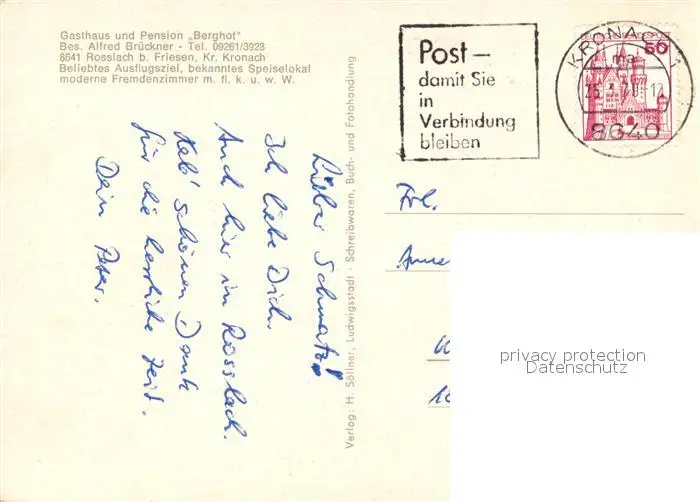 Gasthaus und Pension „Berghof"
Bes. Alfred Brückner - Tel. 09261/3928
8641 Rosslach b. Friesen, Kr. Kronach
Beliebtes Ausflugsziel, bekanntes Speiselokal
moderne Fremdenzimmer m. fl. k. u. w. W.
Lieber Schmatz!
Ich liebe Dich.
Auch hier in Rosslach.
Hab' schönen Dank
für die herrliche Zeit.
Dein Peter.
Verlag: H. Söllner, Ludwigsstadt · Schreibwaren, Buch- und Fotohandlung
Post –
damit Sie
in
Verbindung
bleiben
KRONACH 1
8640
60
Frl.
privacy protection
Datenschutz